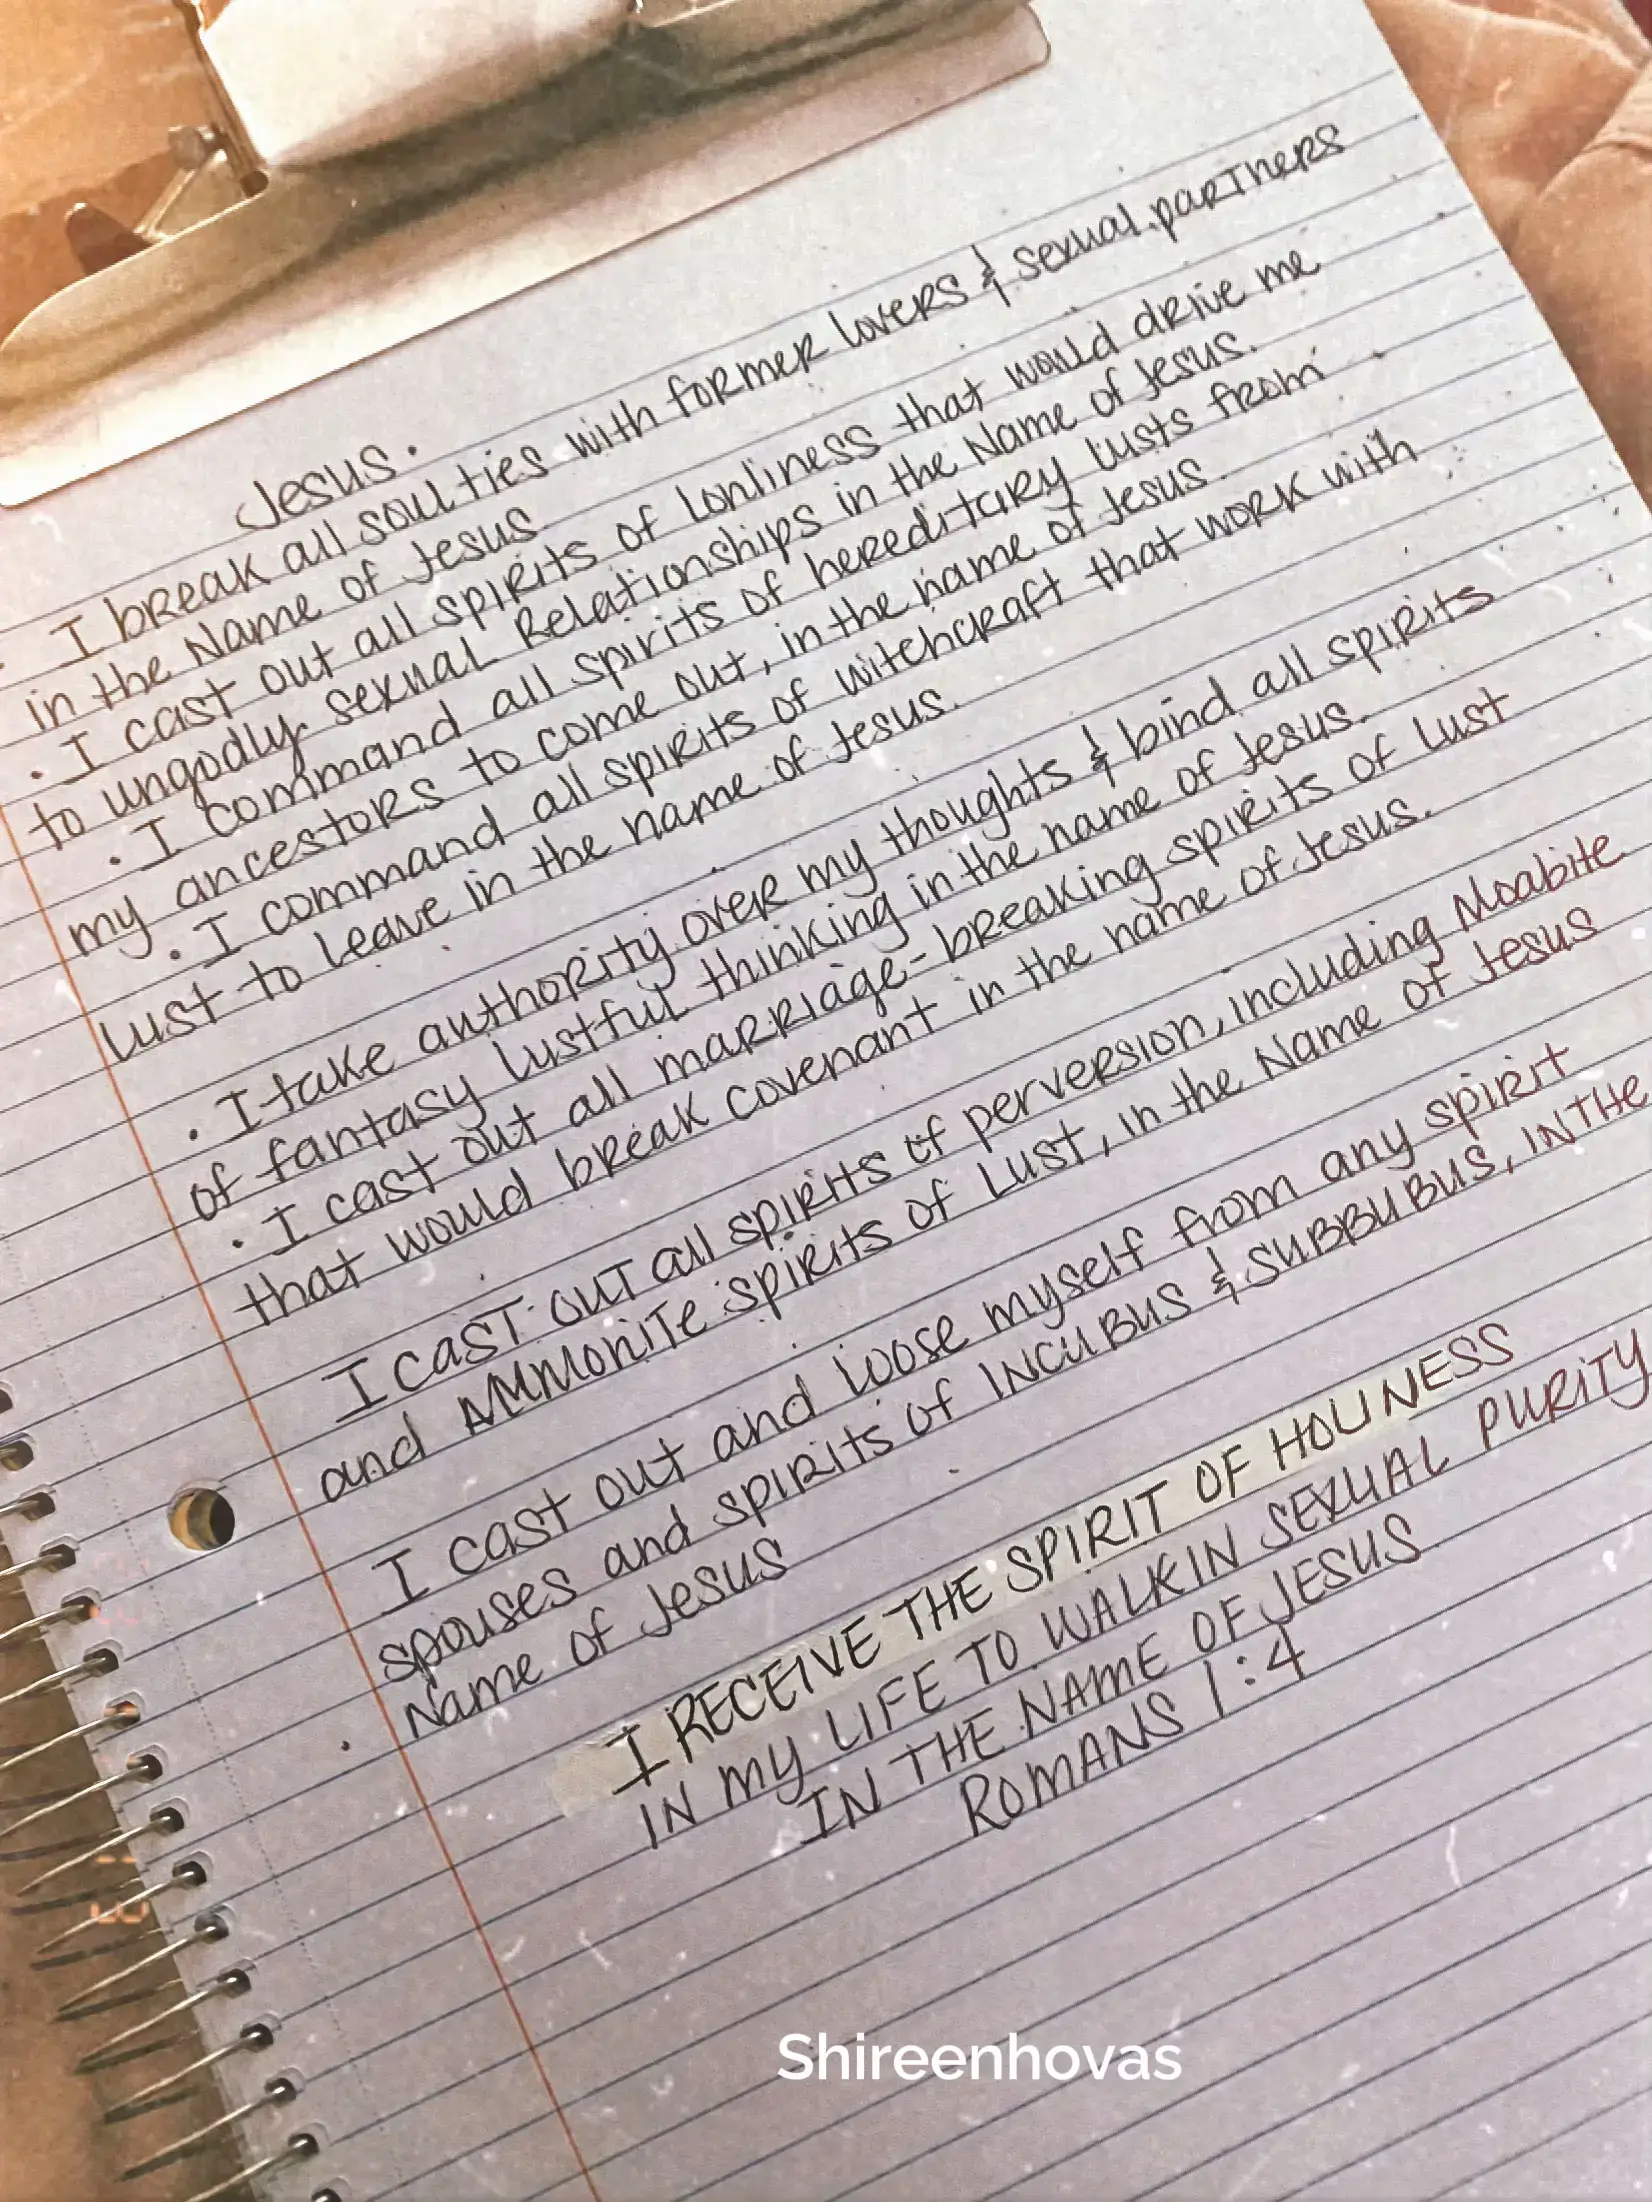 Jesus.
· I break all soul ties with former lovers & sexual partners
in the Name of Jesus
· I cast out all spirits of lonliness that would drive me
to ungodly sexual Relationships in the Name of Jesus.
· I command all spirits of hereditary lusts from
my ancestors to come out, in the name of Jesus.
· I command all spirits of witchcraft that work with
lust to leave in the name of Jesus.
· I take authority over my thoughts & bind all spirits
of fantasy lustful thinking in the name of Jesus.
· I cast out all marriage-breaking spirits of lust
that would break covenant in the name of Jesus.
I cast out all spirits of perversion, including Moabite
and Ammonite spirits of Lust, in the Name of Jesus
I cast out and loose myself from any spirit
spouses and spirits of INCUBUS & SUBBUBUS, IN THE
Name of Jesus
I RECEIVE THE SPIRIT OF HOLINESS
IN MY LIFE TO WALK IN SEXUAL PURITY
IN THE NAME OF JESUS
ROMANS 1:4
Shireenhovas